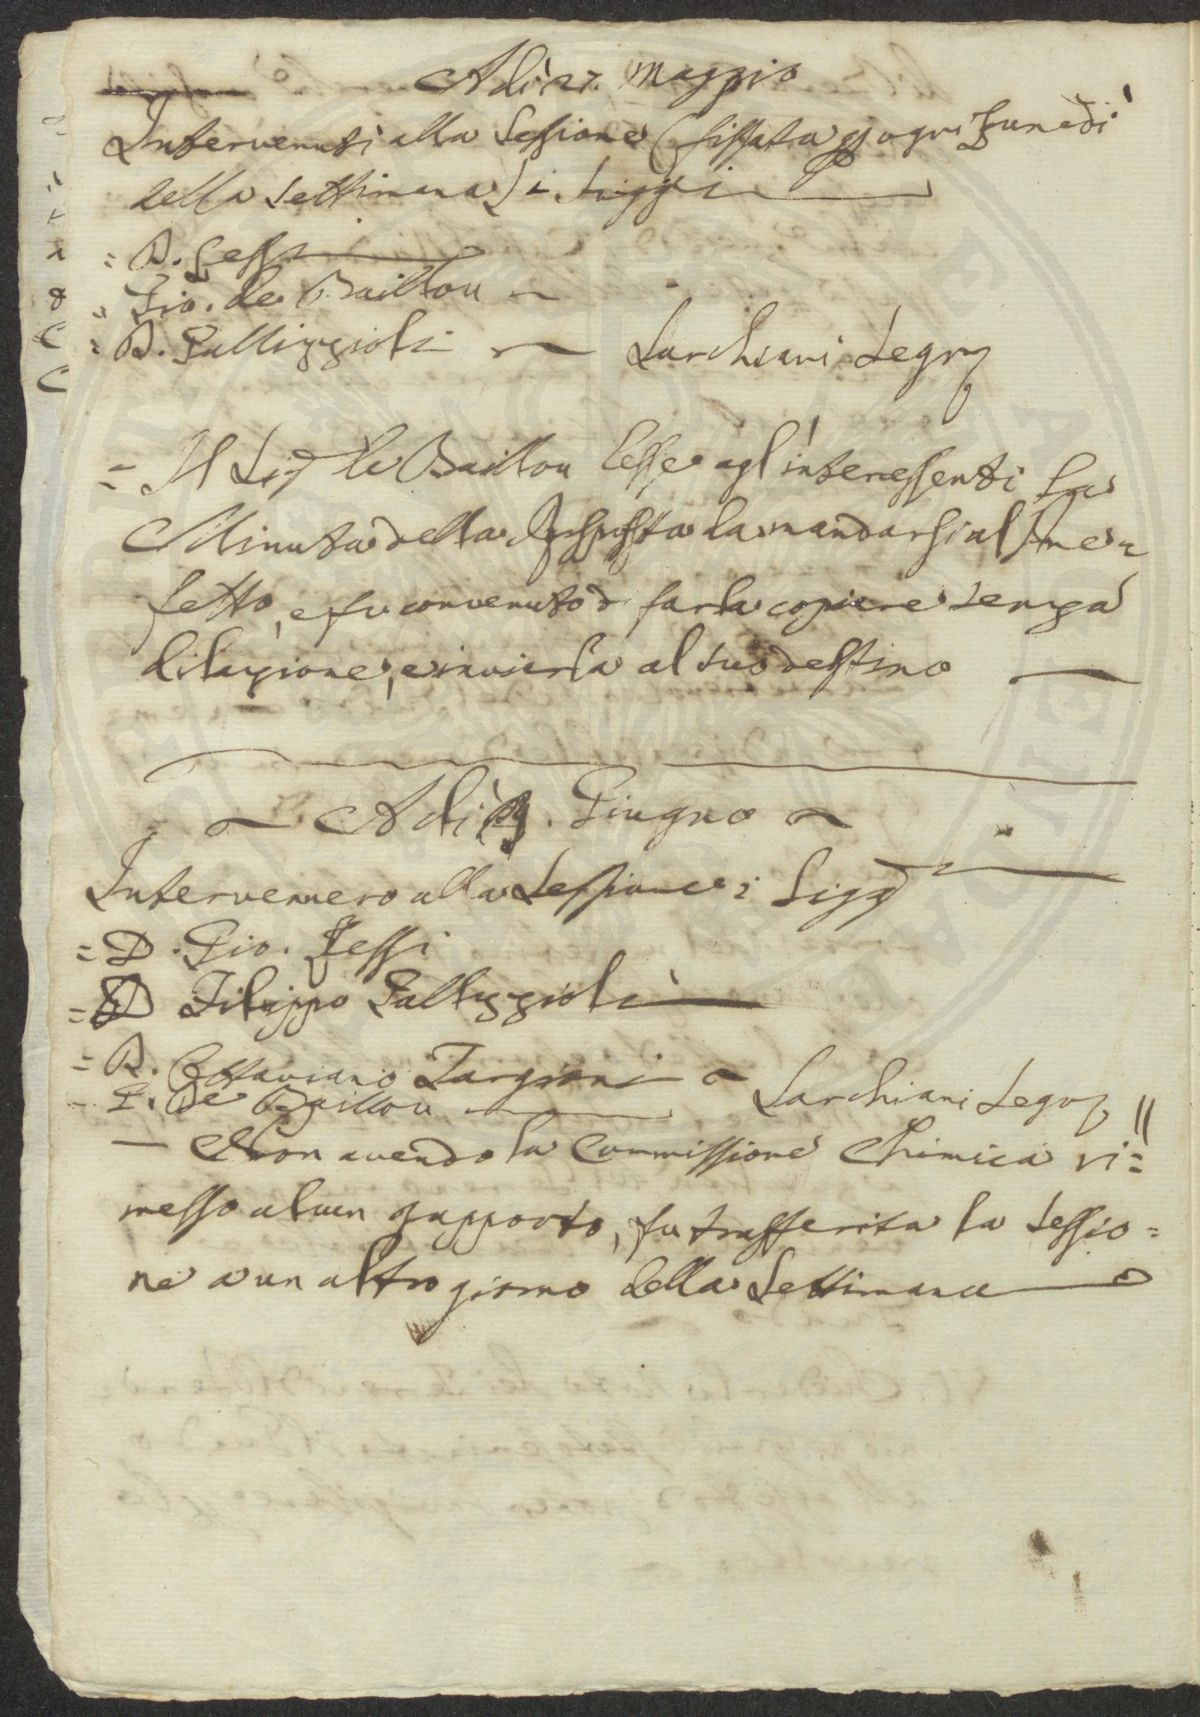 Adì 27. Maggio
Intervenuti alla Sessione (fissata p ogni Lunedì
della Settimana) i Sigg:i
= D. Gessi
= Gio. de Baillou
= D. Pallizzioli — Sarchiani Segr:
= Il Sig: de Baillou lesse agl'interessenti la
Minuta della Risposta da mandarsi al Pre=
fetto, e fu convenuto d farla copiare senza
dilazione, e inviarla al suo destino
Adì 3. Giugno
Intervennero alla Sessione i Sigg:
= D. Gio. Gessi
= D Filippo Pallizzioli
= D. Ottaviano Targioni
= G. De Baillou — Sarchiani Segr:
— Non avendo la Commissione Chimica ri=
messo alcun rapporto, fu trasferita la Sessio=
ne a un altro giorno della Settimana